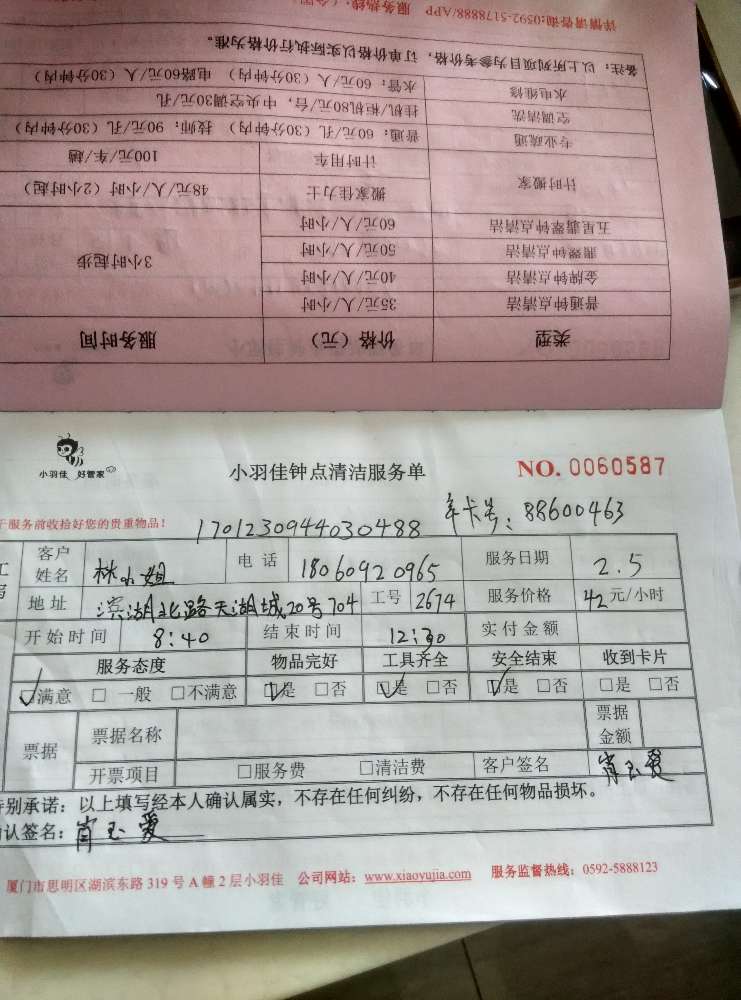 类型 价格（元） 服务时间
普通钟点清洁 35元/人/小时 3小时起步
金牌钟点清洁 40元/人/小时
翡翠钟点清洁 50元/人/小时
五星翡翠钟点清洁 60元/人/小时
计时搬家 搬家佳力士 48元/人/小时（2小时起）
计时用车 100元/车/趟
专业疏通 普通：60元/孔（30分钟内） 技师：90元/孔（30分钟内）
空调清洗 挂机/柜机80元/台，中央空调30元/孔
水电维修 水管：60元/人（30分钟内） 电路60元/人（30分钟内）
备注：以上所列项目为参考价格，订单价格以实际执行价格为准。
详情请咨询：0592-5178888/APP 服务热线：
小羽佳 好管家
小羽佳钟点清洁服务单
NO. 0060587
服务前收拾好您的贵重物品！
1701230944030488
年卡号：88600463
客户姓名 林小姐 电话 18060920965 服务日期 2.5
地址 滨湖北路天湖城20号704 工号 2674 服务价格 42元/小时
开始时间 8:40 结束时间 12:30 实付金额
服务态度 物品完好 工具齐全 安全结束 收到卡片
☑满意 □一般 □不满意 ☑是 □否 ☑是 □否 ☑是 □否 □是 □否
票据 票据名称 票据金额
开票项目 □服务费 □清洁费 客户签名 肖玉爱
特别承诺：以上填写经本人确认属实，不存在任何纠纷，不存在任何物品损坏。
认签名：肖玉爱
厦门市思明区湖滨东路319号A幢2层小羽佳 公司网站：www.xiaoyujia.com 服务监督热线：0592-5888123